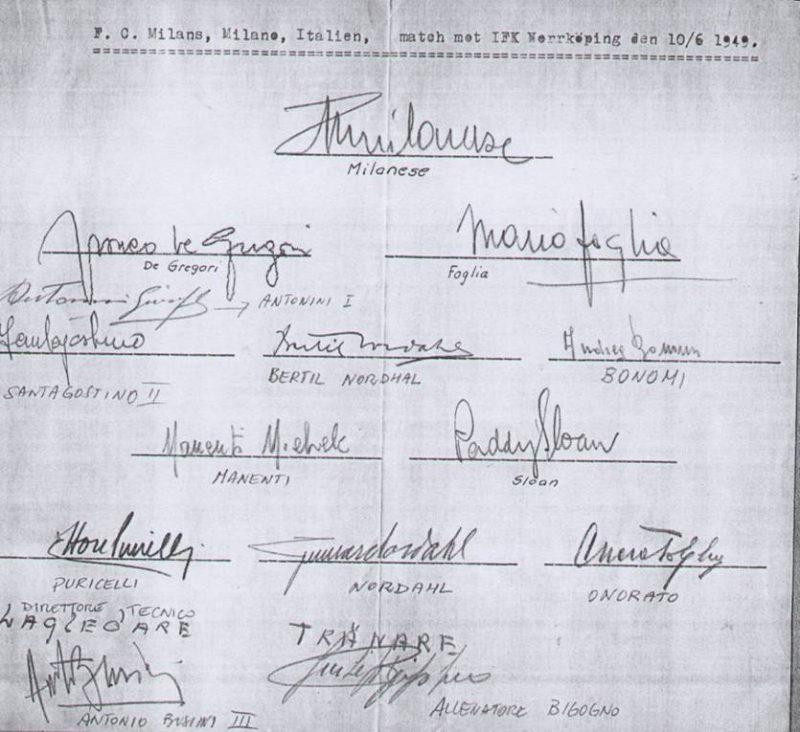 F. C. Milans, Milano, Italien, match mot IFK Norrköping den 10/6 1949.
Milanese
De Gregori
Mario Foglia
Foglia
→ ANTONINI I
Santagostino
SANTAGOSTINO II
Bertil Nordahl
BERTIL NORDHAL
BONOMI
Manenti Michele
MANENTI
Paddy Sloan
Sloan
PURICELLI
Gunnar Nordahl
NORDAHL
ONORATO
DIRETTORE TECNICO
LAGLEDARE
ANTONIO BUSINI III
TRÄNARE
ALLENATORE BIGOGNO